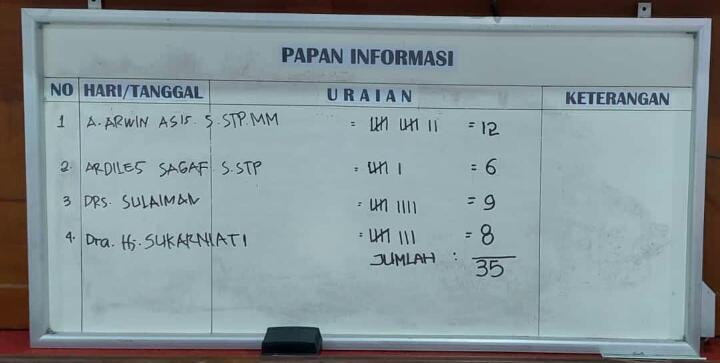 PAPAN INFORMASI
NO HARI/TANGGAL URAIAN KETERANGAN
1 A. ARWIN ASIS. S.STP.MM = 𝍸 𝍸 II = 12
2. ARDILES SAGAF S.STP = 𝍸 I = 6
3 DRS. SULAIMAN = 𝍸 IIII = 9
4. Dra. Hj. SUKARNIATI = 𝍸 III = 8
JUMLAH : 35